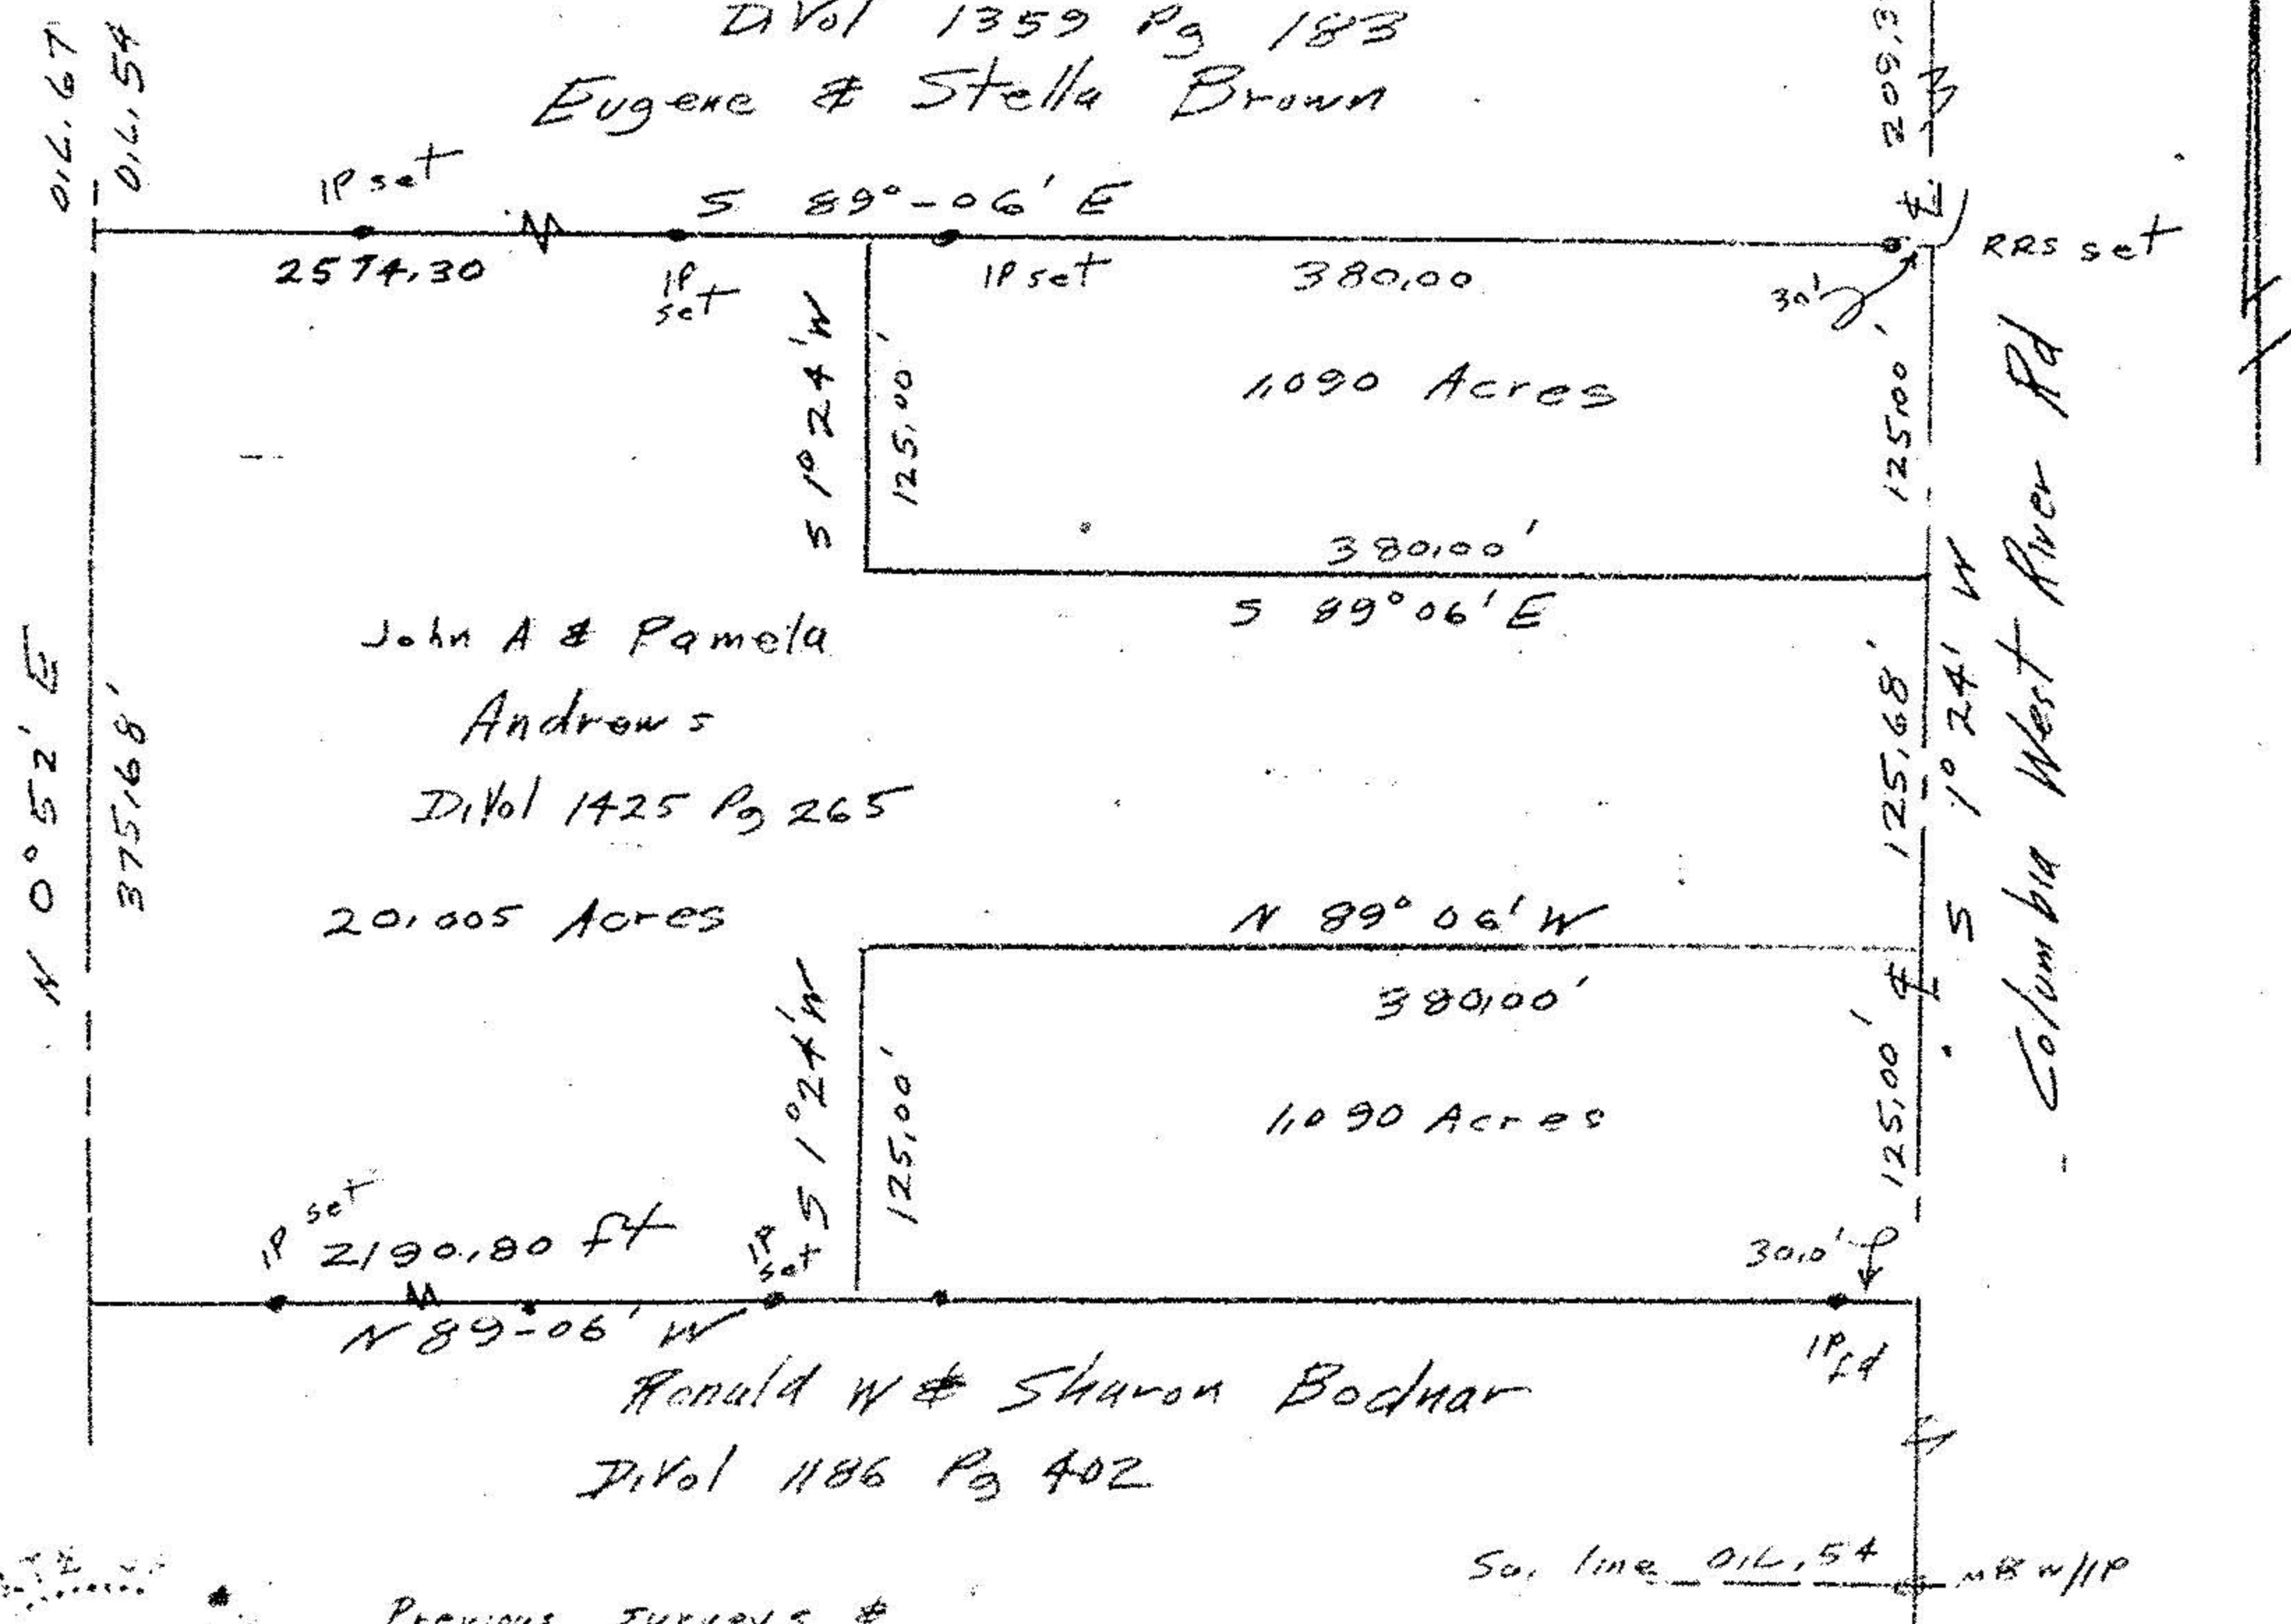 D.Vol 1359 Pg 183
Eugene & Stella Brown
O.L. 67
O.L. 54
209.3
IP set
S 89°-06' E
℄
RRS set
2574.30
IP
set
IP set
380.00
30'
S 1° 24' W
125.00'
1.090 Acres
125.00'
380.00'
S 89° 06' E
John A & Pamela
Andrews
D.Vol 1425 Pg 265
20.005 Acres
N 0° 52' E
375.68'
125.68'
S 1° 24' W
Columbia West River Rd
N 89° 06' W
380.00'
℄
S 1° 24' W
125.00'
1.090 Acres
125.00'
IP set
2190.80 ft
IP
set
30.0'
N 89-06' W
IP fd
Ronald W & Sharon Bodnar
D.Vol 1186 Pg 402
So. line O.L. 54
MB w/IP
Previous surveys &